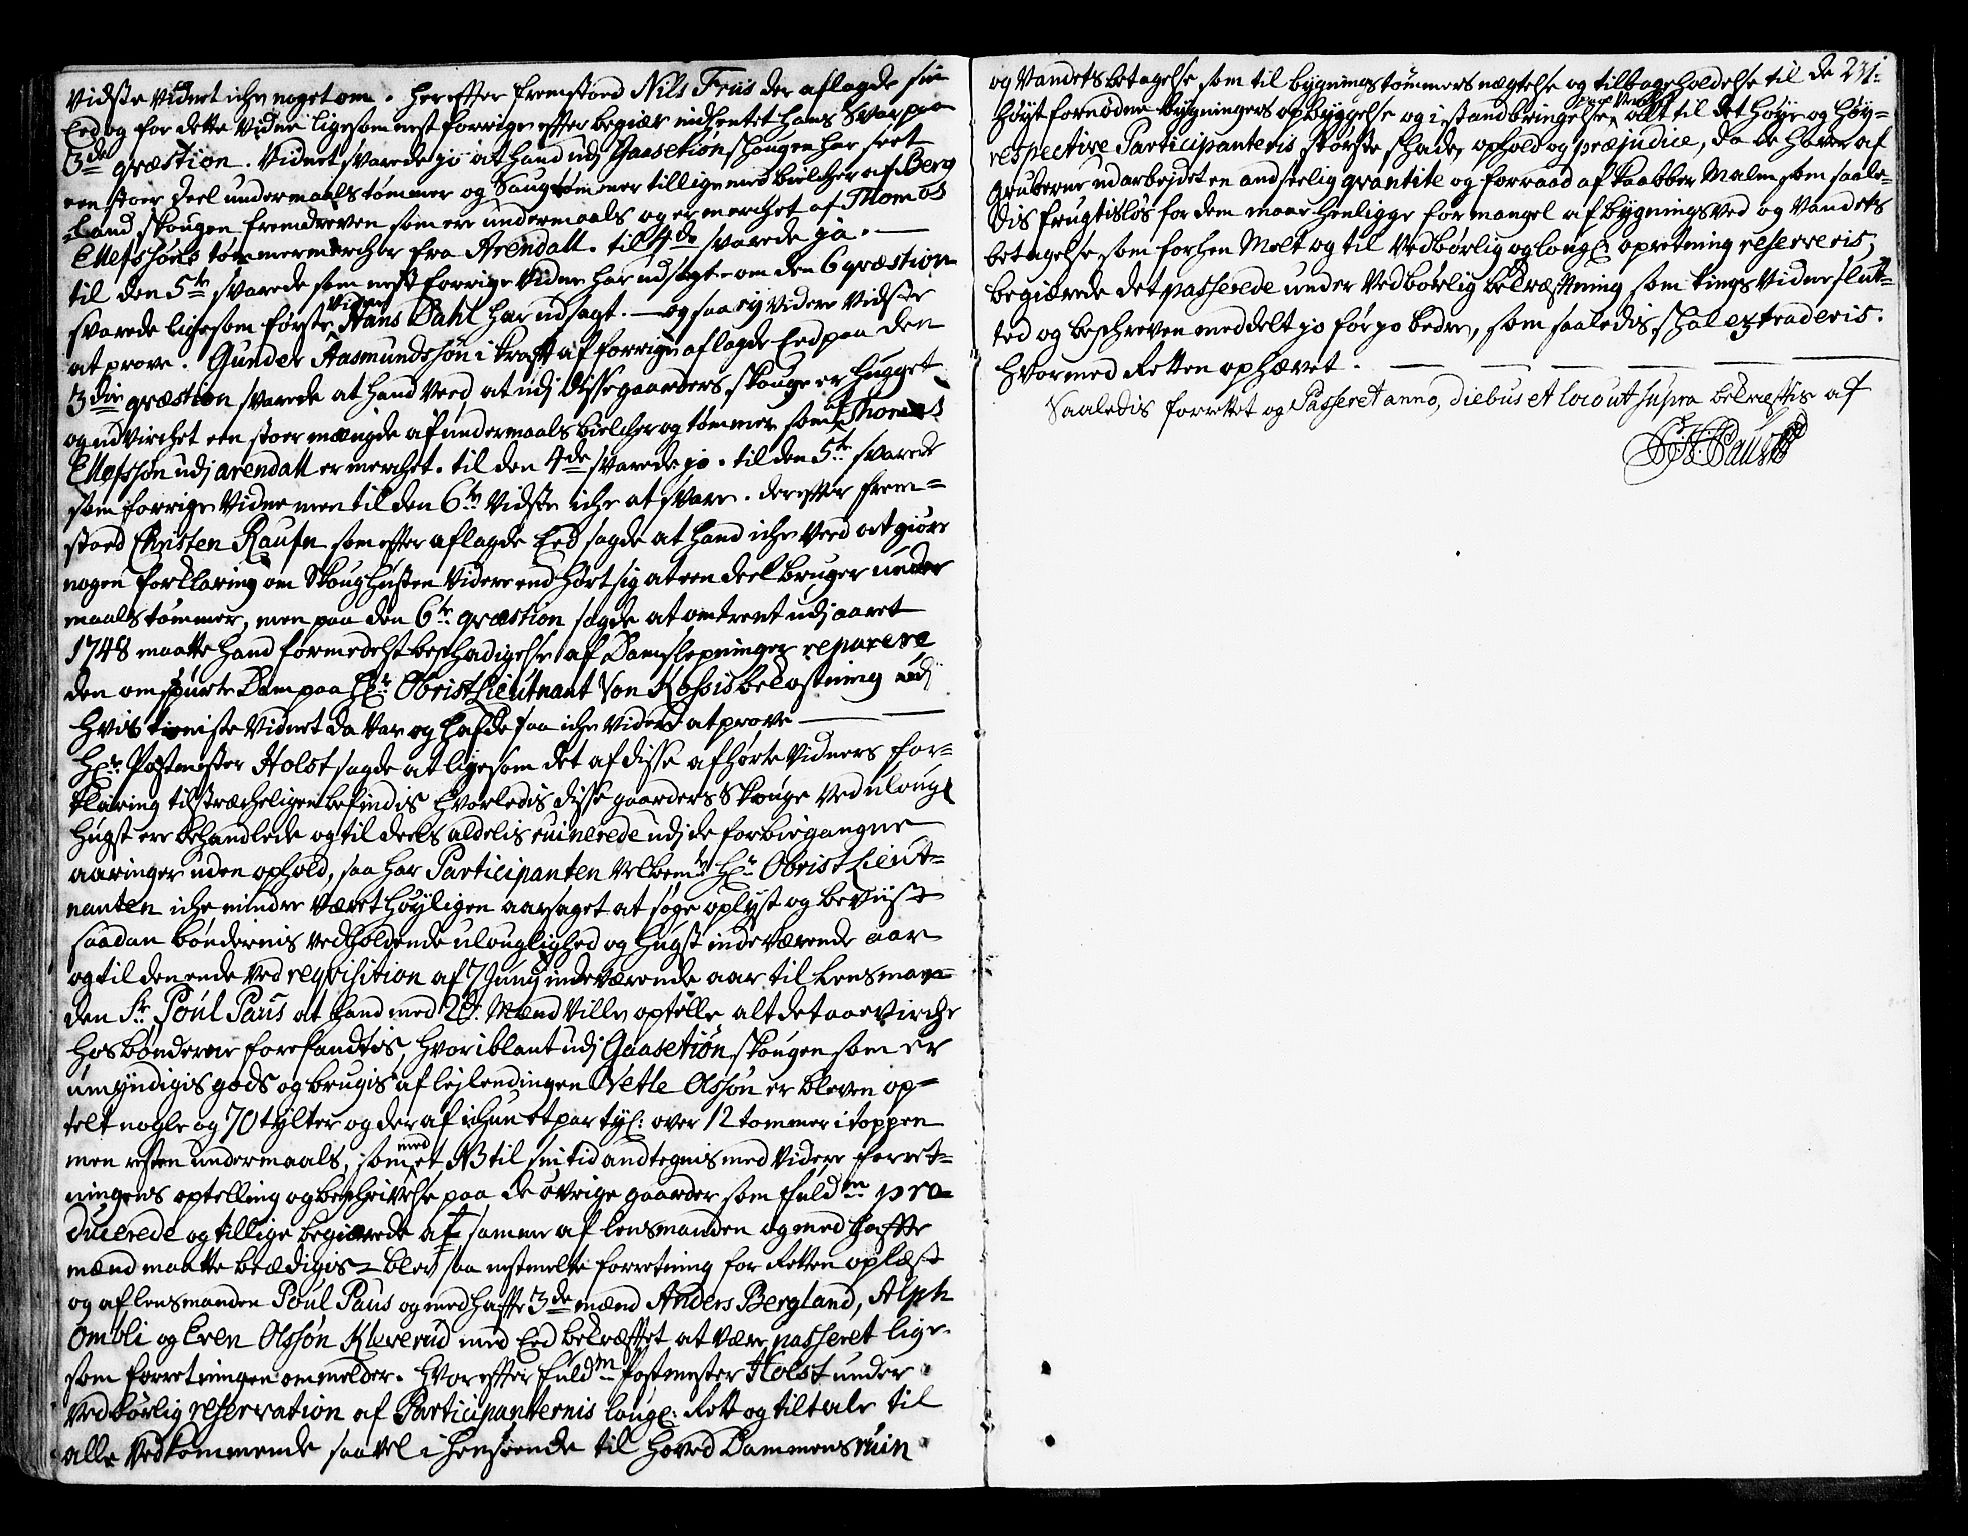 Vidste Vidnet iche noget om. Herefter fremstoed Nils Friis der aflagde sin
Eed og for dette Vidne ligesom nest forrige efter begiær indhentet hans Svar paa
3de qvæstion. Vidnet svarede jo at hand udj Gaasetiøn skougen har seet
een stoer deel undermaals tømmer og Saugtømmer tillige med bielcher af Berg
Land skougen fremdreven som er undermaals og er merchet af Thomas
Ellefssøns tømmermercher fra Arendall. til 4de svarede ja.
til den 5te svarede som nest forrige Vidne har udsagt. om den 6 qvæstion
svarede ligesom første Vidne Hans Dahl har udsagt. – og saa ej videre Vidste
at prove. Gunder Aasmundssøn i kraft af forrige aflagde Eed paa den
3die qvæstion svarede at hand Veed, at udj disse gaarders skouge er hugget
og udvirchet een stoer mængde af undermaals bielcher og tømmer som af Thomas
Ellefssøn udj arendall er merchet. til den 4de svarede jo. til den 5te svarede
som forrige Vidne men til den 6te Vidste iche at svare. derefter frem=
stoed Christen Raufn som efter aflagde Eed sagde at hand iche Veed at giøre
nogen forklaring om Skoughusten Videre end hørt sig at een deel bruger under
maals tømmer, men paa den 6te qvæstion sagde at omtrent udj aaret
1748 maatte hand formedelst beskadigelse af Damslepninger reparere
den omspurte Dam paa Hr Obrist Lieutnant Von Kossis bekostning udj
hvis tieniste Vidnet da var og hafde saa iche videre at prove
Hr Postmester Holst sagde at ligesom det af disse afhørte Vidners for=
klaring tilstræcheligen befindis hvorledis disse gaarders Skouge Ved ulougl
hugst ere behandlede og til deels aldelis ruinerede udj de forbiegangne
aaringer uden ophold, saa har Participanten Velbemte Hr Obrist Lieut=
nanten iche mindre været høyligen aarsaget at søge oplyst og beviist
saadan bøndernis vedholdende ulouglighed og hugst indeværende aar
og til den ende ved reqvisition af 7 Junij indeværende aar til Lensman=
den Sr Poul Paus at hand med 2de Mænd ville optelle alt det aarvirche
hos bønderne forefandtis, hvoriblant udj Gaasetiøn skougen som er
umyndigis gods og brugis af lejlendingen Vetle Olssøn er bleven op=
telt nogle og 70 tylter og der af ichun et par tyl: over 12 tommer i toppen
men resten undermaals, som med et NB til sin tid andtegnis med videre forret=
ningens optelling og beschrivelse paa de øvrige gaarder som fuldm pro=
ducerede og tillige begiærede at samme af lensmanden og med hafte
mænd maatte beædigis – blev saa nestmelte forretning for Retten oplæst
og af lensmanden Poul Paus og med hafte 3de mænd Anders Bergland, Alph
Ombli og Even Olssøn Kleverud med Eed bekræftet at være passeret lige=
som forretningen ommelder. Hvorefter fuldm Postmester Holst under
Vedbørlig reservation af Participanternis lougl: Rett og tiltale til
alle Vedkommende saavel i henseende til hoved Dammens ruin
231.
og Vandets betagelse som til bygnings tømmers nægtelse og tilbageholdelse til de
høyt fornødne bygningers opbyggelse og istandbringelse allt til det høye og høy=
respective Participanteris største schade, ophold og præjudice, da de haver af
Gruberne udarbejdet en andseelig qvantite og forraad af Kaabber Malm som saale=
dis frugtisløs for dem maar henligge for mangel af bygningsved og Vandets
betagelse som forhen Melt og til Vedbørlig og lougl opretning reserveris;
begiærede det passerede under Vedbørlig bekræftning som tings vidne slut=
ted og beschreven meddelt jo før jo bedre, som saaledis schal extraderis.
Hvormed Retten ophævet.
Saaledis forrettet og Passeret anno, diebus et loco ut supra bekræftis af
Paus